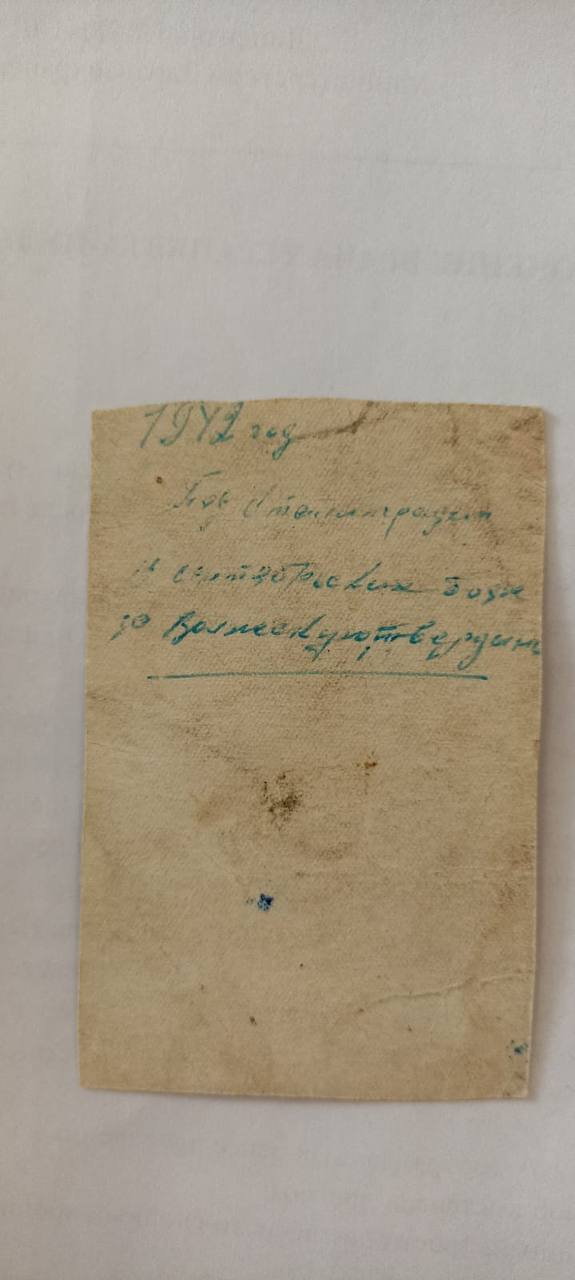 1942 год
Под Сталинградом
в сентябрьских боях
за Волжскую твердыню